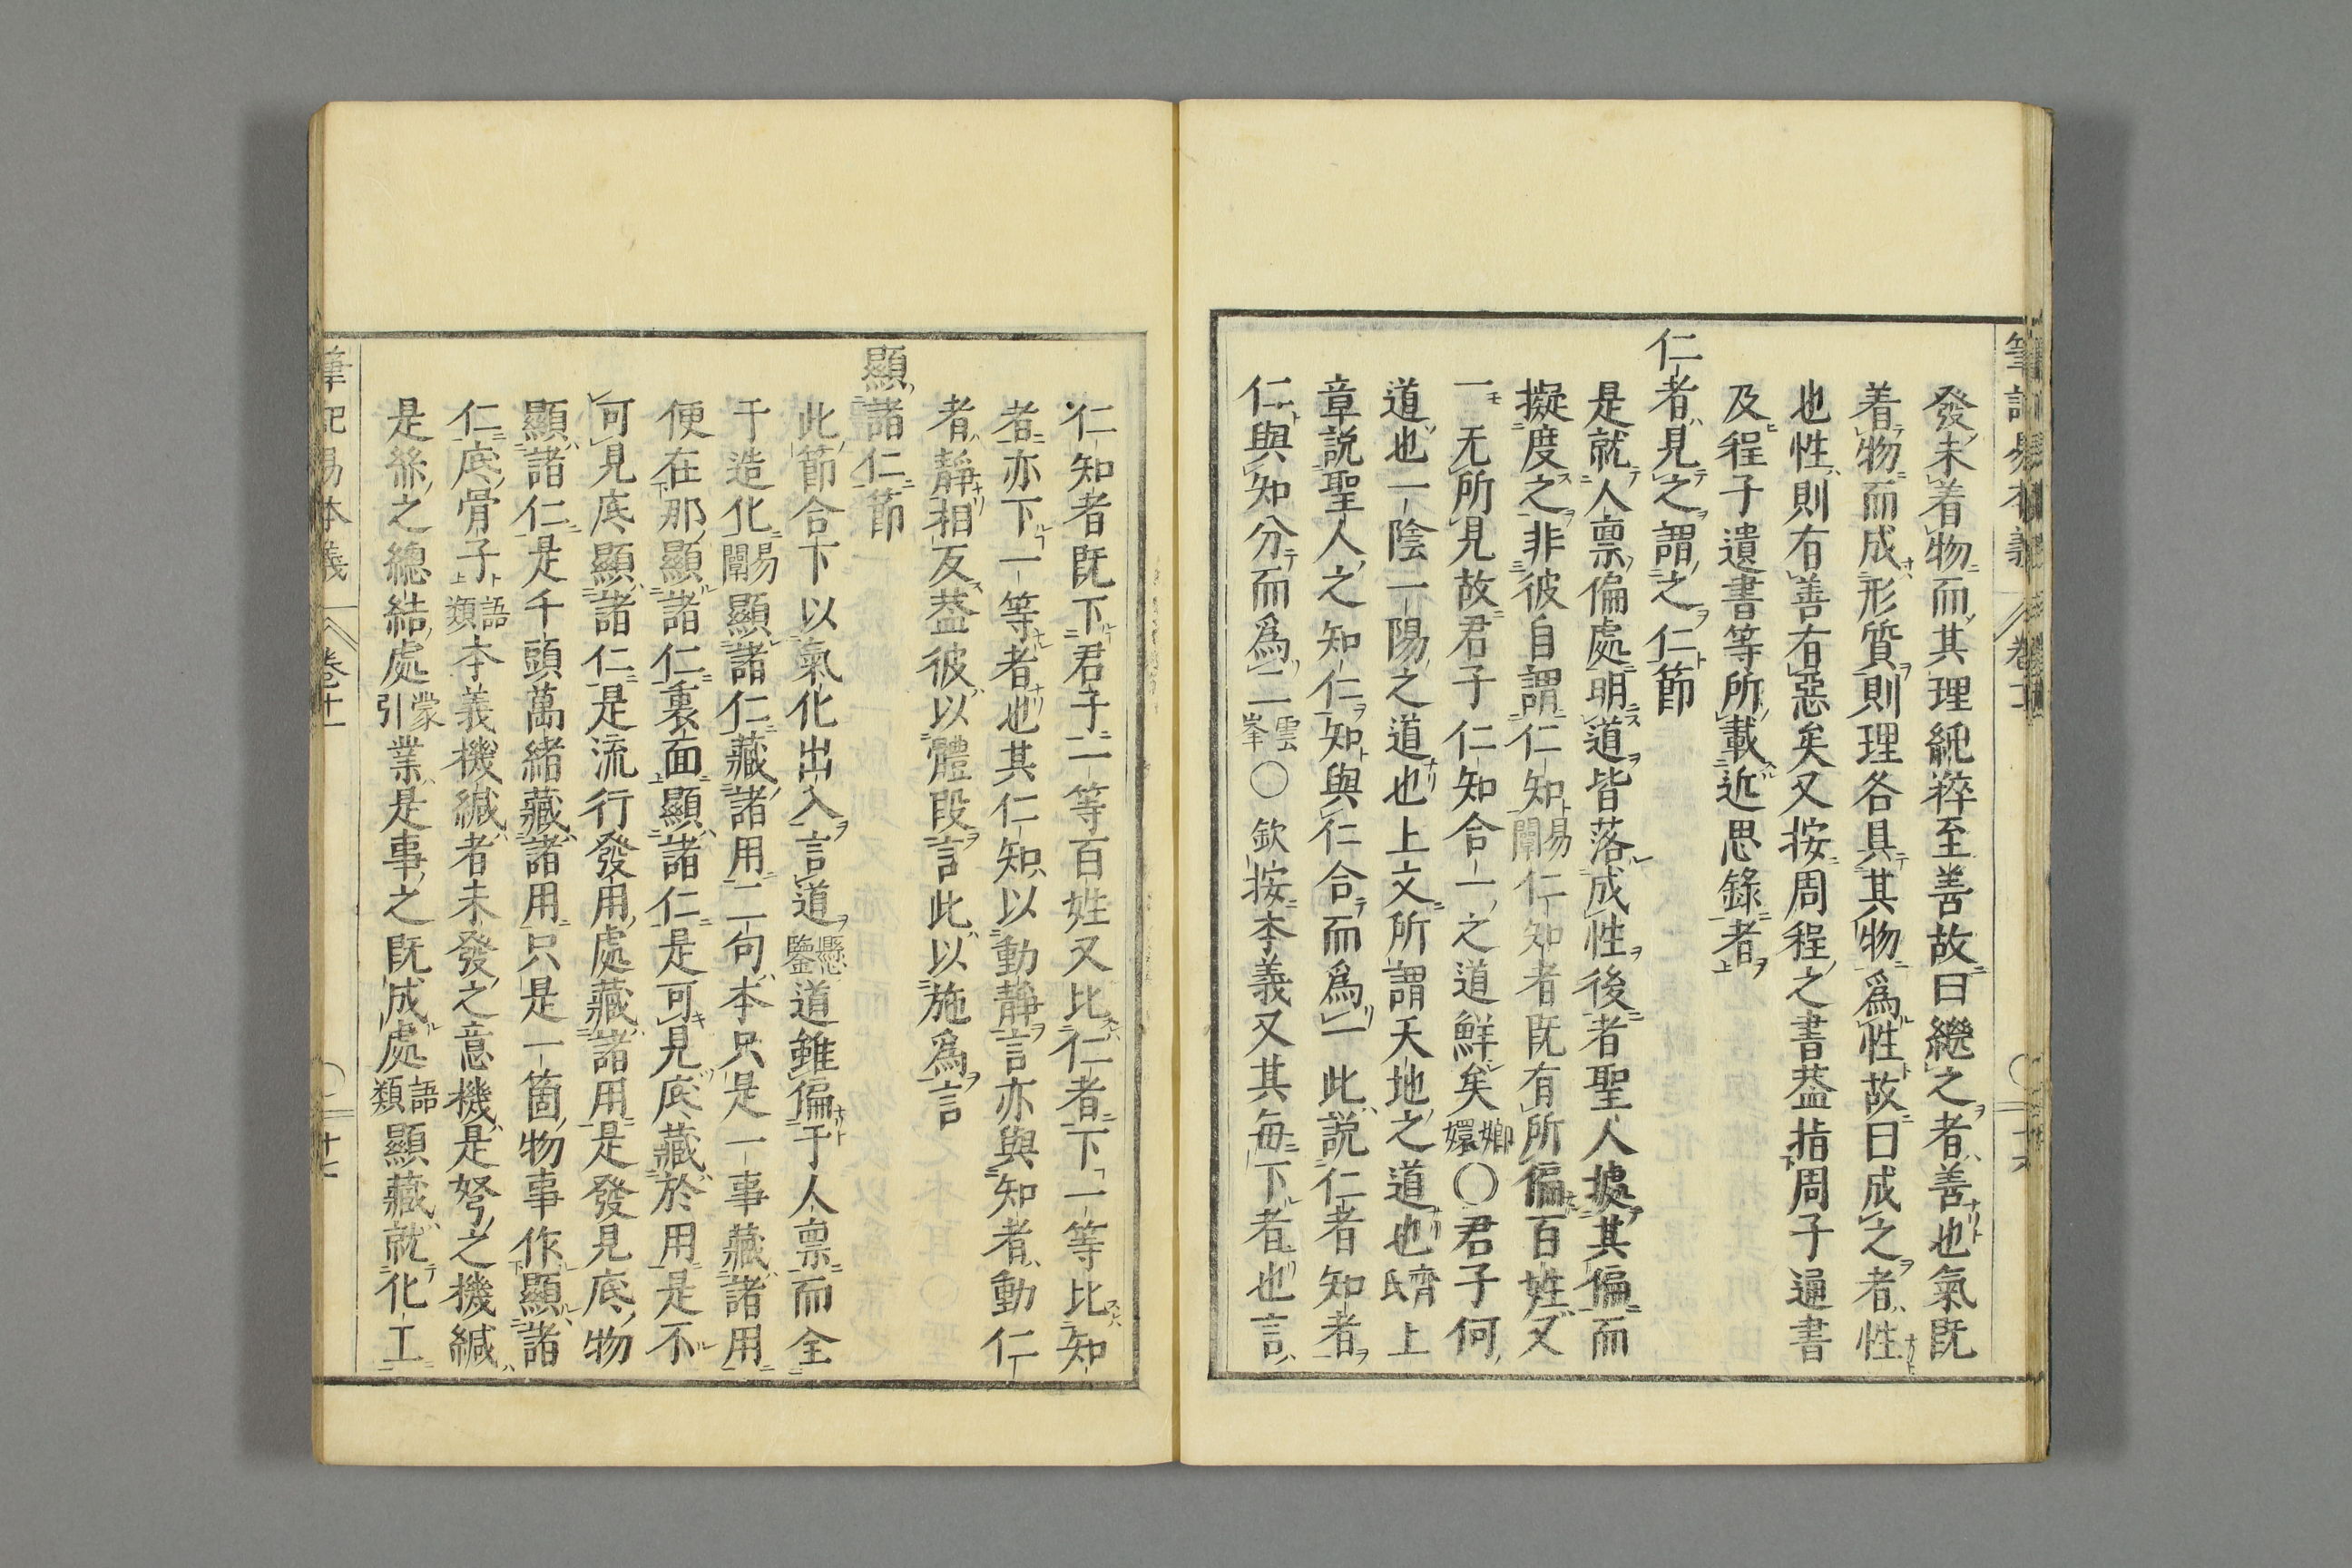 發未着物而其理純粹至善故曰繼之者善也氣既
着物而成形質則理各具其物爲性故曰成之者性
也性則有善有惡矣又按周程之書葢指周子通書
及程子遺書等所載近思錄者
仁者見之謂之仁節
是就人禀偏處明道皆落成性後者聖人據其偏而
擬度之非彼自謂仁知易闡仁知者既有所偏百姓又
一无所見故君子仁知合一之道鮮矣嫏嬛○君子何
道也一陰一陽之道也上文所謂天地之道也齊氏上
章説聖人之知仁知與仁合而爲一此説仁者知者
仁與知分而爲二雲峯○欽按本義又其每下者也言
仁知者既下君子一等百姓又比仁者下一等比知
者亦下一等者也其仁知以動靜言亦與知者動仁
者靜相反葢彼以體段言此以施爲言
顯諸仁節
此節合下以氣化出入言道懸鑑道雖偏于人禀而全
于造化易闡顯諸仁藏諸用二句本只是一事藏諸用
便在那顯諸仁裏面顯諸仁是可見底藏於用是不
可見底顯諸仁是流行發用處藏諸用是發見底物
顯諸仁是千頭萬緒藏諸用只是一箇物事作顯諸
仁底骨子語類本義機緘者未發之意機是弩之機緘
是絲之總結處蒙引業是事之既成處語類顯藏就化工
筆記易本義 卷十一 十七